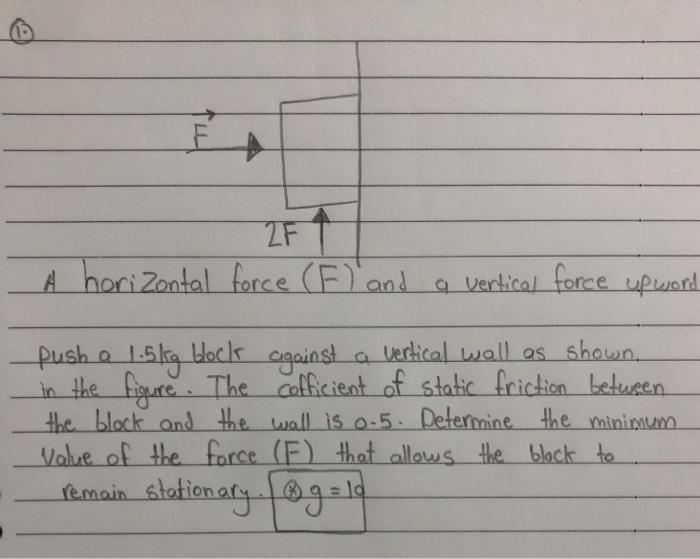 1.
F
2F
A horizontal force (F) and a vertical force upword
push a 1.5kg block against a vertical wall as shown.
in the figure. The cofficient of static friction between
the block and the wall is 0.5. Determine the minimum
Value of the force (F) that allows the block to
remain stationary. * g = 10